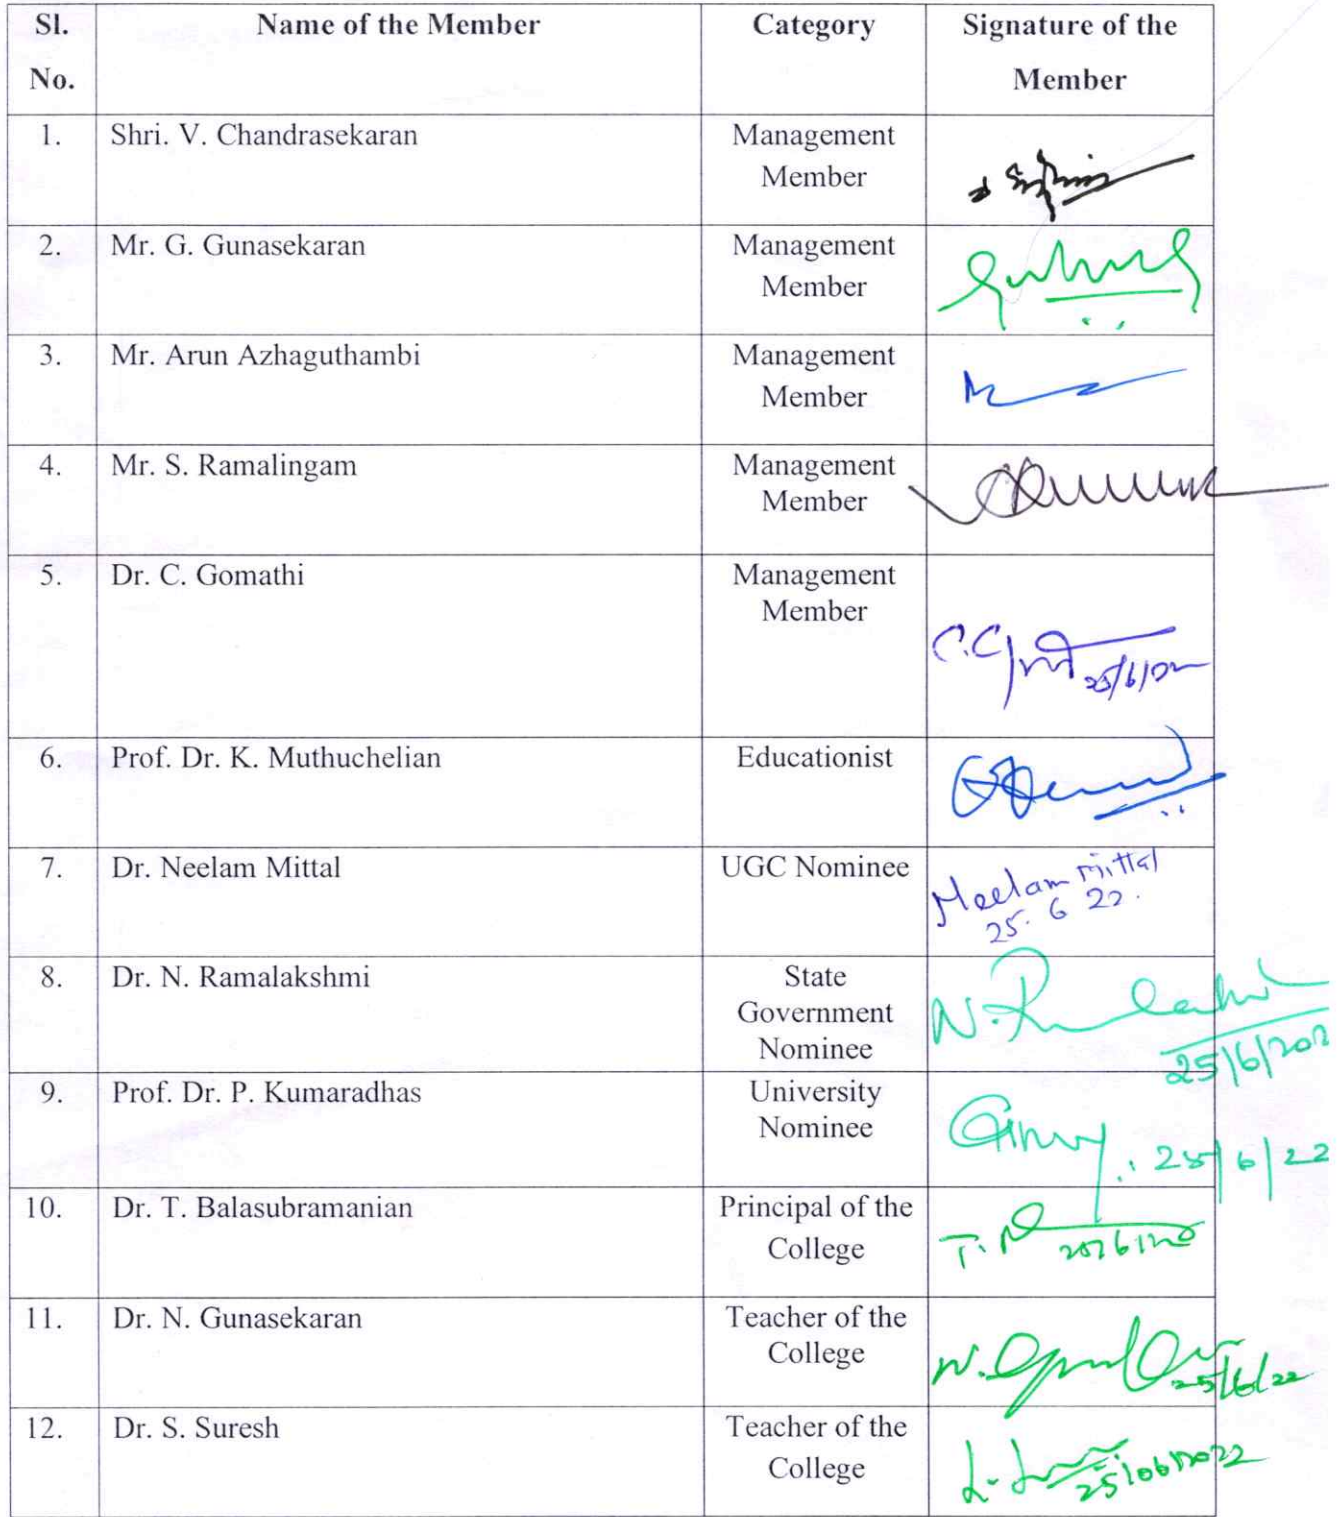 Sl. No. Name of the Member Category Signature of the Member
1. Shri. V. Chandrasekaran Management Member
2. Mr. G. Gunasekaran Management Member
3. Mr. Arun Azhaguthambi Management Member
4. Mr. S. Ramalingam Management Member
5. Dr. C. Gomathi Management Member 25/6/22
6. Prof. Dr. K. Muthuchelian Educationist
7. Dr. Neelam Mittal UGC Nominee Neelam Mittal 25.6 22.
8. Dr. N. Ramalakshmi State Government Nominee 25/6/202
9. Prof. Dr. P. Kumaradhas University Nominee 25/6/22
10. Dr. T. Balasubramanian Principal of the College
11. Dr. N. Gunasekaran Teacher of the College 25/6/22
12. Dr. S. Suresh Teacher of the College 25/06/2022